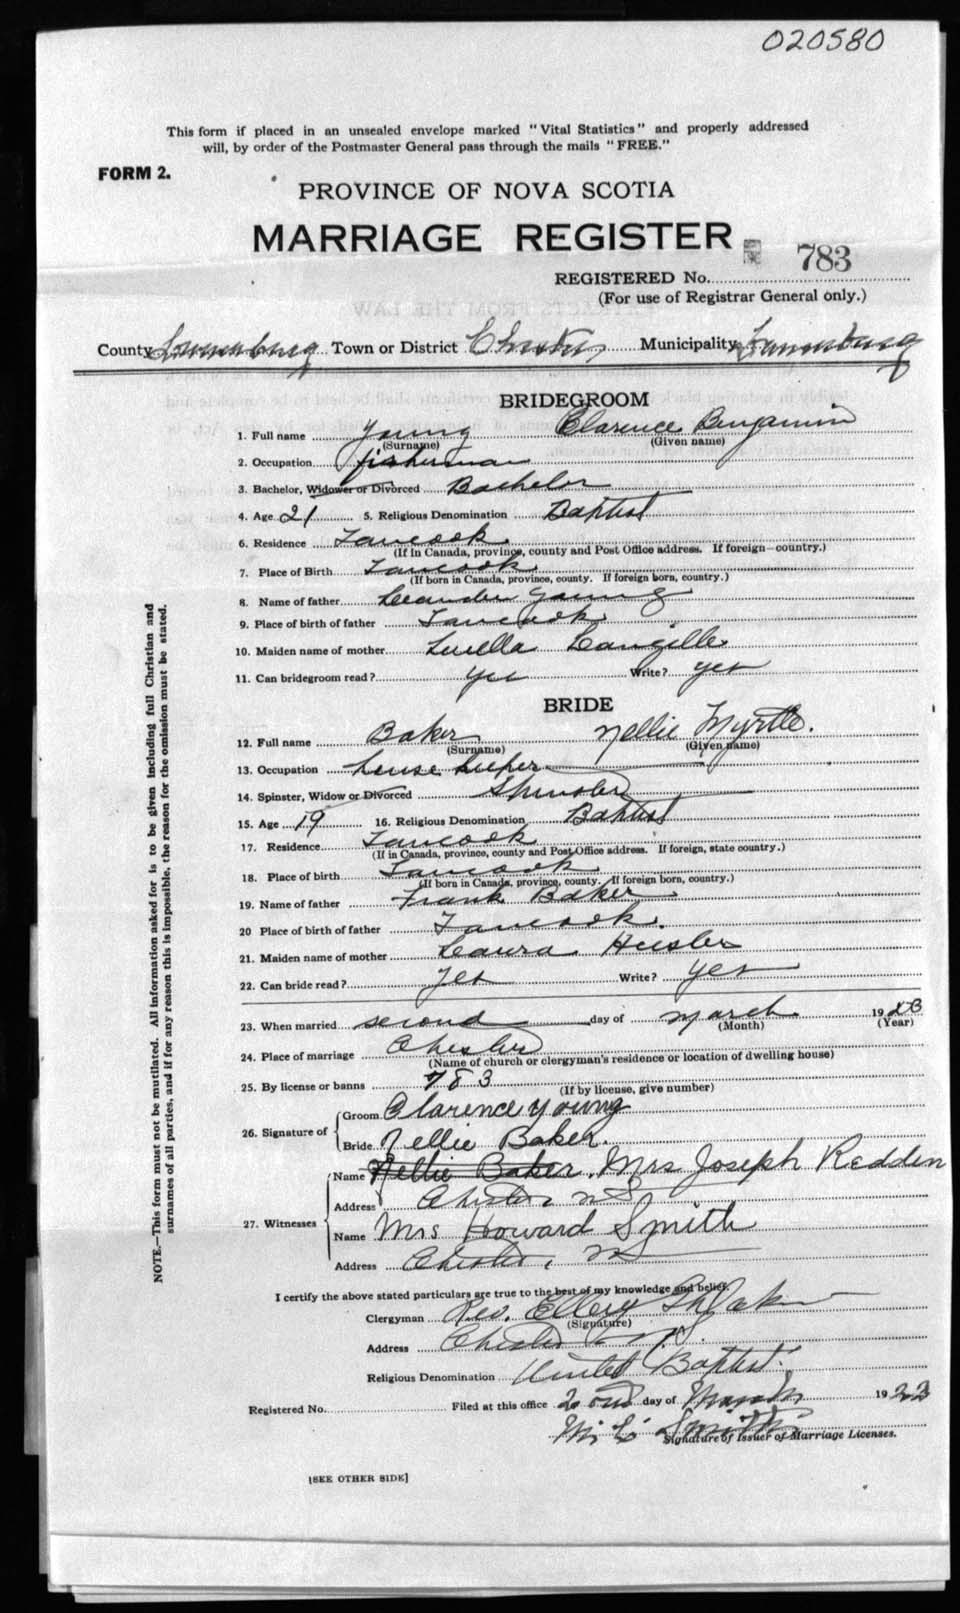 020580
This form if placed in an unsealed envelope marked "Vital Statistics" and properly addressed
will, by order of the Postmaster General pass through the mails "FREE."
FORM 2.
PROVINCE OF NOVA SCOTIA
MARRIAGE REGISTER
REGISTERED No. 783
(For use of Registrar General only.)
County Lunenburg Town or District Chester Municipality Lunenburg
BRIDEGROOM
1. Full name Young Clarence Benjamin
(Surname) (Given name)
2. Occupation fisherman
3. Bachelor, Widower or Divorced Bachelor
4. Age 21 5. Religious Denomination Baptist
6. Residence Tancook
(If in Canada, province, county and Post Office address. If foreign—country.)
7. Place of Birth Tancook
(If born in Canada, province, county. If foreign born, country.)
8. Name of father Leander Young
9. Place of birth of father Tancook
10. Maiden name of mother Luella Langille
11. Can bridegroom read? yes Write? yes
BRIDE
12. Full name Baker Nellie Myrtle.
(Surname) (Given name)
13. Occupation house keeper
14. Spinster, Widow or Divorced Spinster
15. Age 19 16. Religious Denomination Baptist
17. Residence Tancook
(If in Canada, province, county and Post Office address. If foreign, state country.)
18. Place of birth Tancook
(If born in Canada, province, county. If foreign born, country.)
19. Name of father Frank Baker
20 Place of birth of father Tancook.
21. Maiden name of mother Laura Heisler
22. Can bride read? Yes Write? yes
23. When married second day of March 1923
(Month) (Year)
24. Place of marriage Chester
(Name of church or clergyman's residence or location of dwelling house)
25. By license or banns 783
(If by license, give number)
26. Signature of
Groom Clarence Young
Bride Nellie Baker.
27. Witnesses
Name Nellie Baker Mrs Joseph Redden
Address Chester, NS
Name Mrs Howard Smith
Address Chester, NS
I certify the above stated particulars are true to the best of my knowledge and belief.
Clergyman Rev. Ellery
(Signature)
Address Chester N.S.
Religious Denomination United Baptist.
Registered No. Filed at this office 2nd day of March 1923
Smith
Signature of Issuer of Marriage Licenses.
[SEE OTHER SIDE]
NOTE.—This form must not be mutilated. All information asked for is to be given including full Christian and
surnames of all parties, and if for any reason this is impossible, the reason for the omission must be stated.